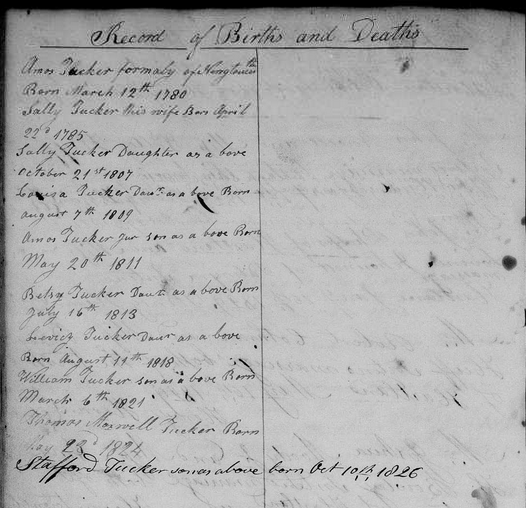 Record of Births and Deaths
Amos Tucker formaly of
Born March 12th 1780
Sally Tucker his wife Born April
22d 1785
Sally Tucker Daughter as a bove
October 21st 1807
Louisa Tucker Daur as a bove Born
august 7th 1809
Amos Tucker jur son as a bove Born
May 20th 1811
Betsy Tucker Daur as a bove Born
July 16th 1813
Tucker Daur as a bove
Born August 11th 1818
William Tucker son as a bove Born
March 6th 1821
Thomas Maxwell Tucker Born
May 22d 1824
Stafford Tucker son as above born Oct 10th 1826